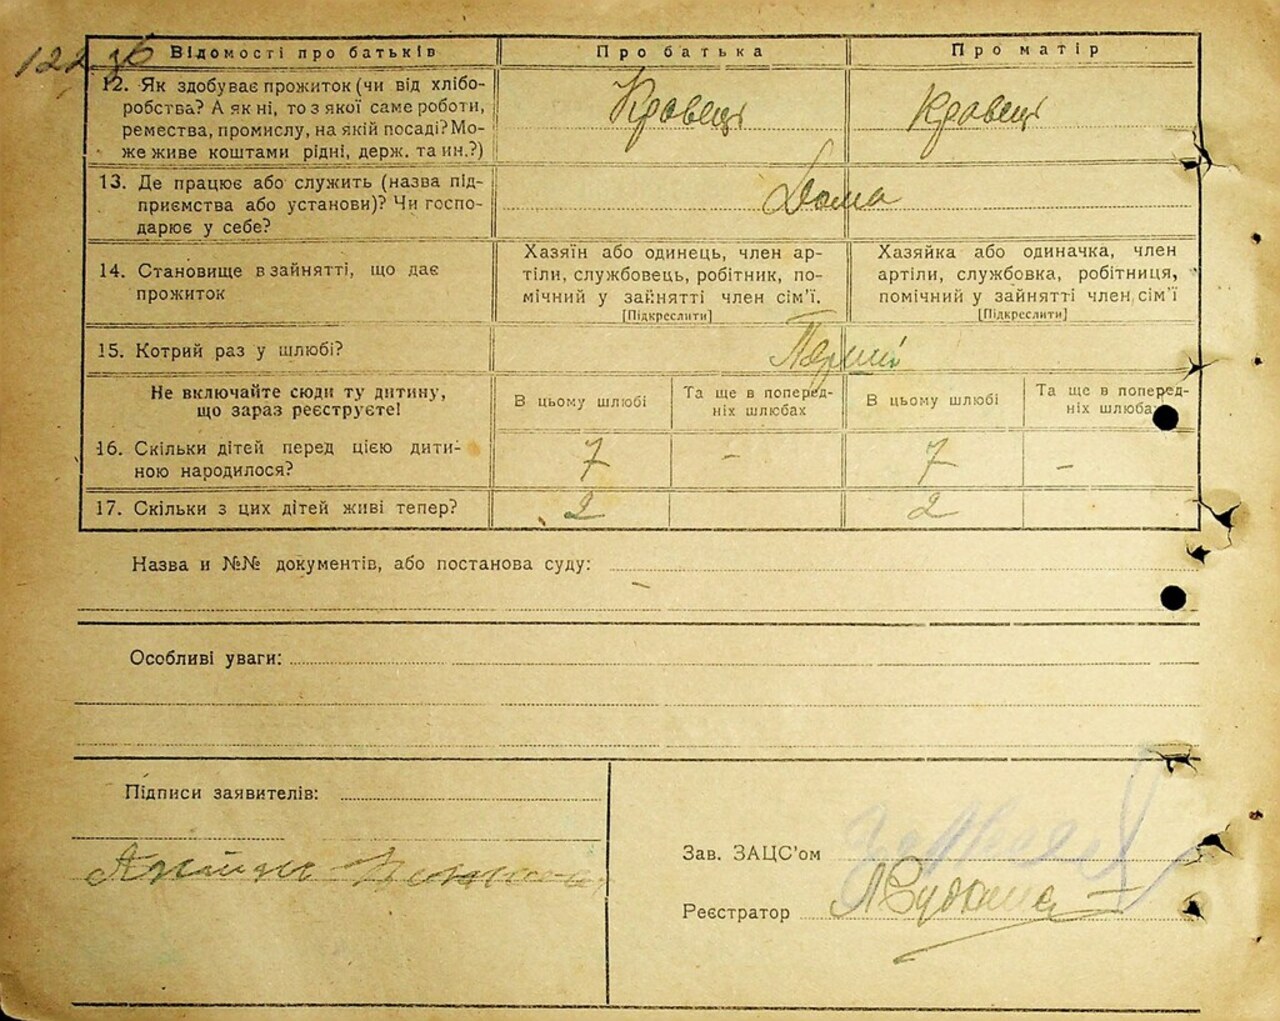 122 зб
Відомості про батьків Про батька Про матір
12. Як здобуває прожиток (чи від хлібо-
робства? А як ні, то з якої саме роботи,
ремества, промислу, на якій посаді? Мо-
же живе коштами рідні, держ. та ин.?)
Кравець Кравець
13. Де працює або служить (назва під-
приємства або установи)? Чи госпо-
дарює у себе?
Дома
14. Становище в зайнятті, що дає
прожиток
Хазяїн або одинець, член ар-
тіли, службовець, робітник, по-
мічний у зайнятті член сім'ї.
[Підкреслити]
Хазяйка або одиначка, член
артіли, службовка, робітниця,
помічний у зайнятті член сім'ї
[Підкреслити]
15. Котрий раз у шлюбі?
Перший
Не включайте сюди ту дитину,
що зараз реєструєте!
В цьому шлюбі
Та ще в поперед-
ніх шлюбах
В цьому шлюбі
Та ще в поперед-
ніх шлюбах
16. Скільки дітей перед цією дити-
ною народилося?
7 - 7 -
17. Скільки з цих дітей живі тепер?
2 2
Назва и №№ документів, або постанова суду:
Особливі уваги:
Підписи заявителів:
Зав. ЗАЦС'ом
Реєстратор